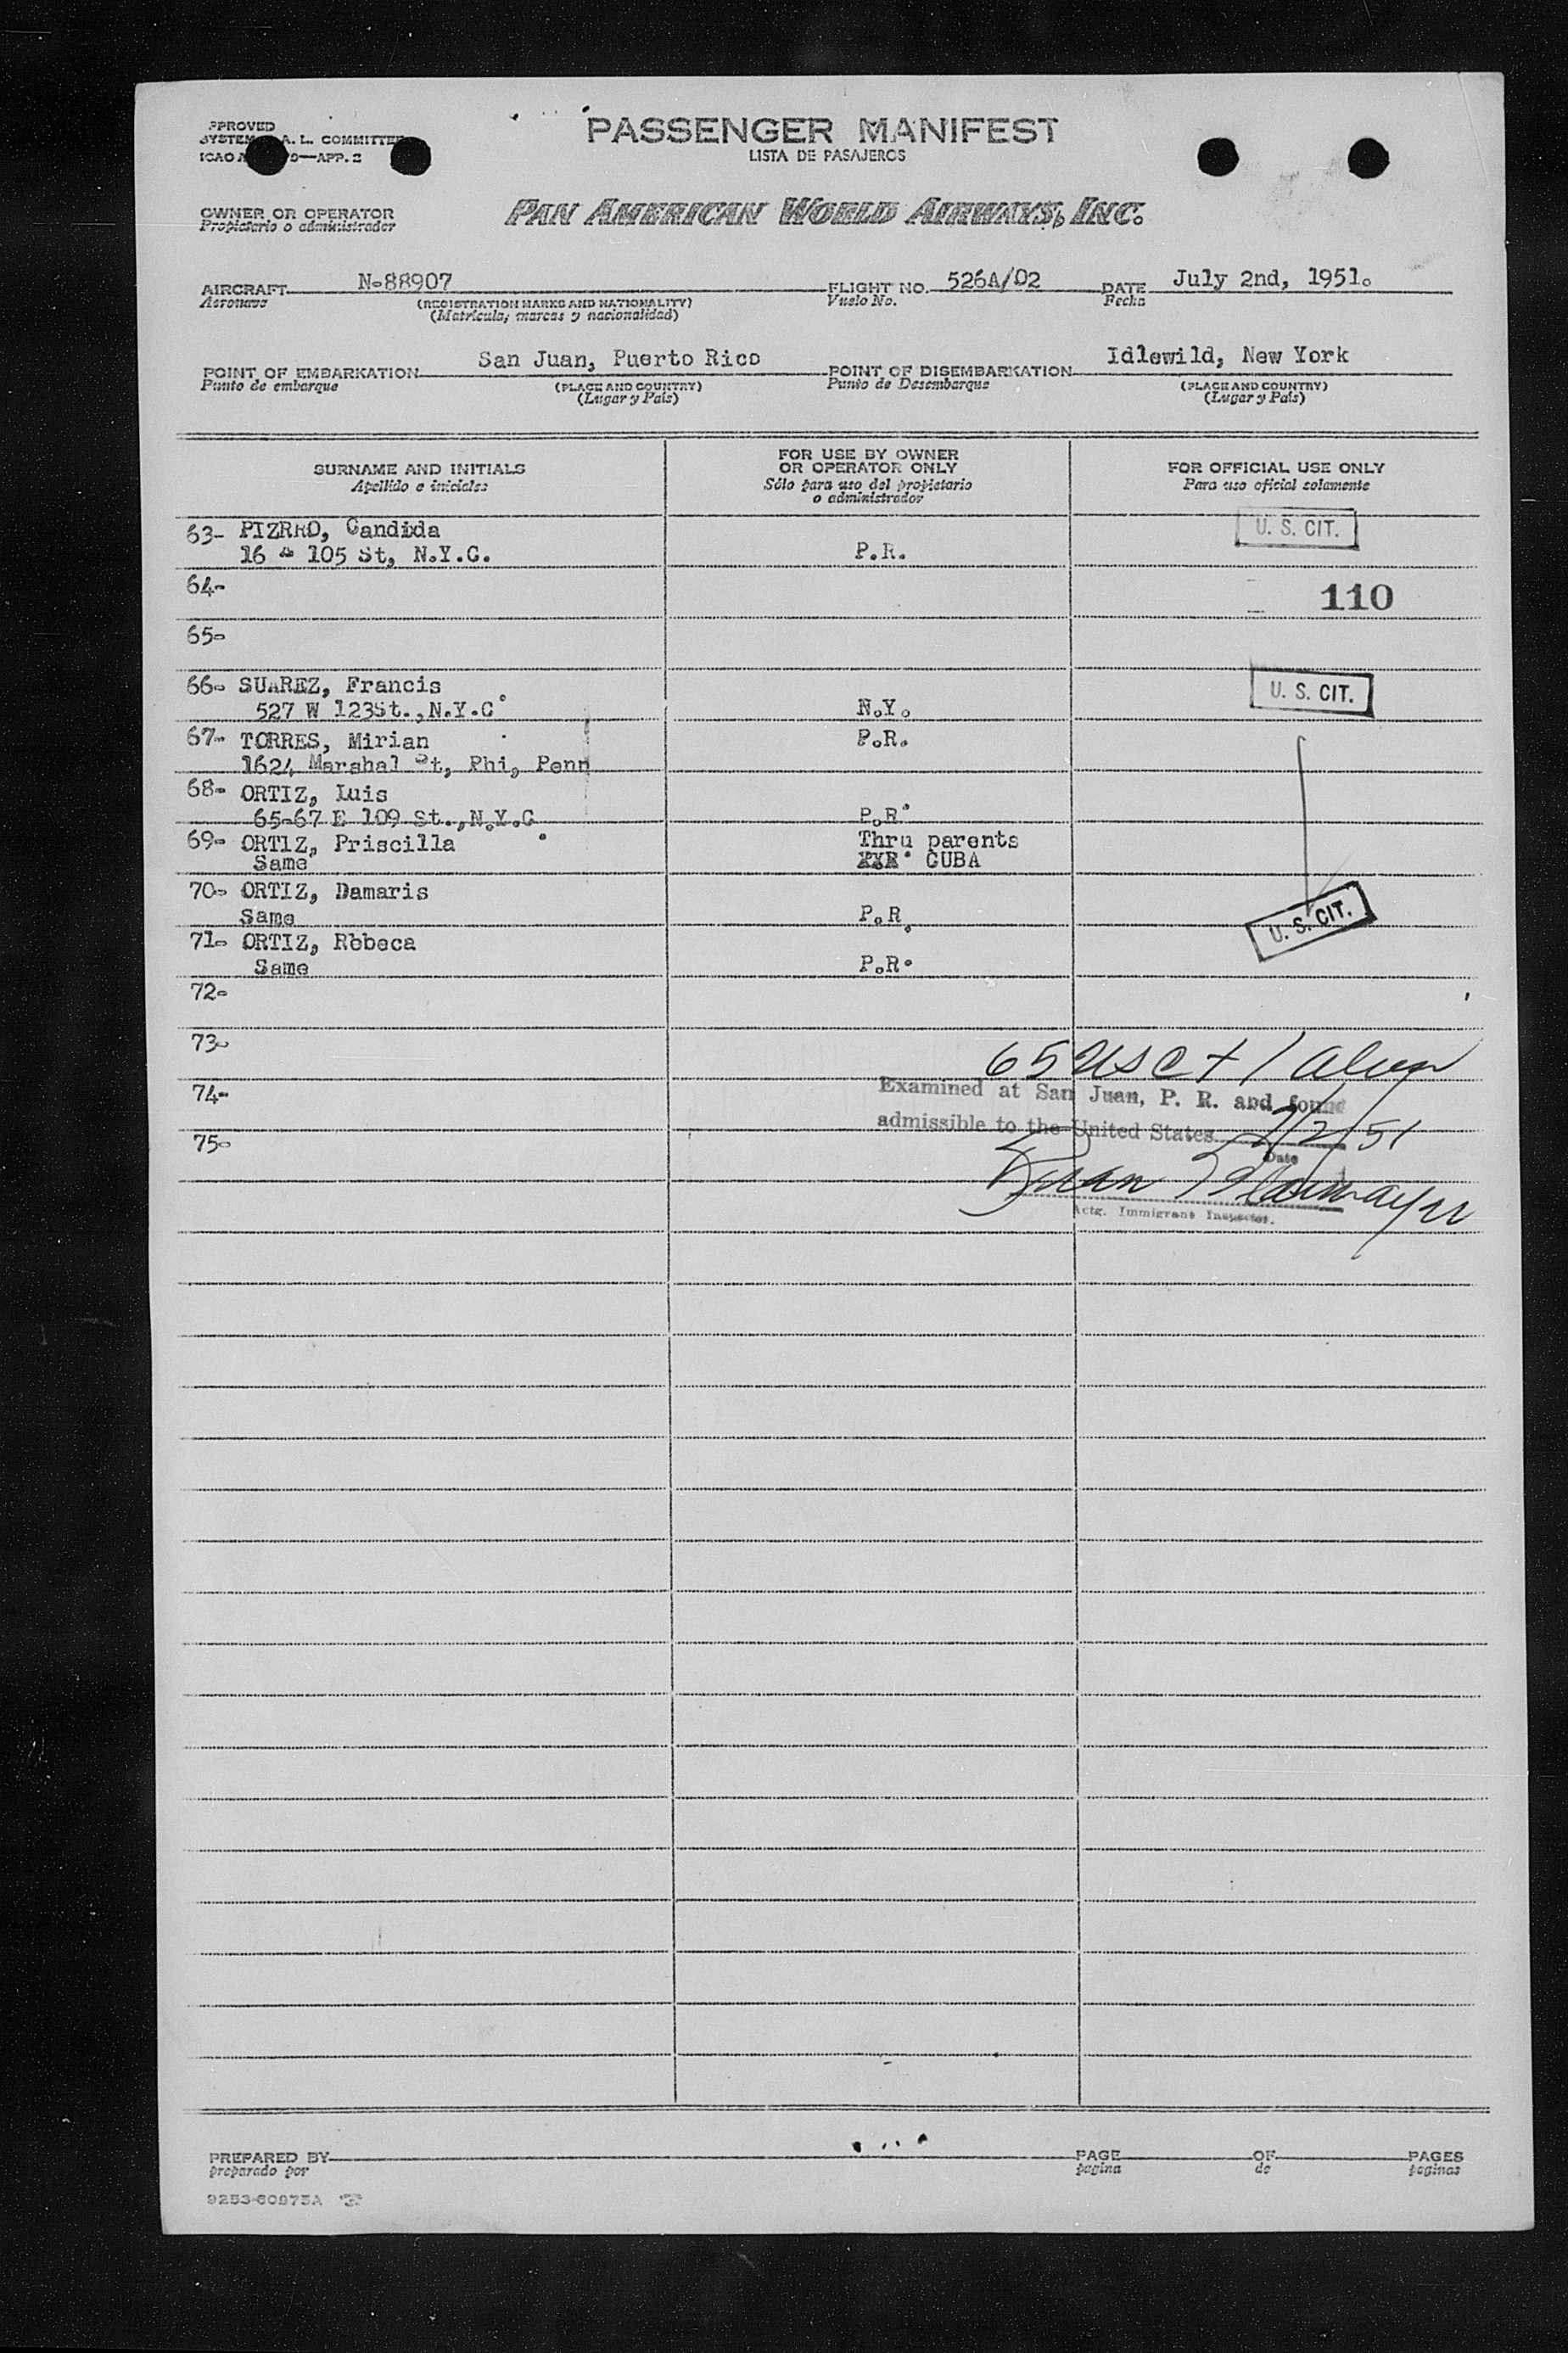 PASSENGER MANIFEST
LISTA DE PASAJEROS
A. L. COMMITTEE
APP. 2
OWNER OR OPERATOR
Propietario o administrador
PAN AMERICAN WORLD AIRWAYS, INC.
AIRCRAFT N-88907 FLIGHT NO. 526A/02 DATE July 2nd, 1951.
Aeronave (REGISTRATION MARKS AND NATIONALITY) Vuelo No. Fecha
(Matrícula, marcas y nacionalidad)
POINT OF EMBARKATION San Juan, Puerto Rico POINT OF DISEMBARKATION Idlewild, New York
Punto de embarque (PLACE AND COUNTRY) Punto de Desembarque (PLACE AND COUNTRY)
(Lugar y País) (Lugar y País)
SURNAME AND INITIALS FOR USE BY OWNER OR OPERATOR ONLY FOR OFFICIAL USE ONLY
Apellido e iniciales Sólo para uso del propietario o administrador Para uso oficial solamente
63- PIZRRO, Candida U. S. CIT.
16 - 105 St, N.Y.C. P.R.
64- 110
65-
66- SUAREZ, Francis U. S. CIT.
527 W 123St.,N.Y.C. N.Y.
67- TORRES, Mirian P.R.
1624 Marshal St, Phi, Penn
68- ORTIZ, Luis
65-67 E 109 St.,N.Y.C P.R.
69- ORTIZ, Priscilla Thru parents
Same CUBA
70- ORTIZ, Damaris
Same P.R. U. S. CIT.
71- ORTIZ, Rebeca
Same P.R.
72-
73- 65 USC + 1 alien
74- Examined at San Juan, P. R. and found
admissible to the United States 7/2/51
75- Date
Actg. Immigrant Inspector.
PREPARED BY PAGE OF PAGES
preparado por pagina de paginas
9253-60875A